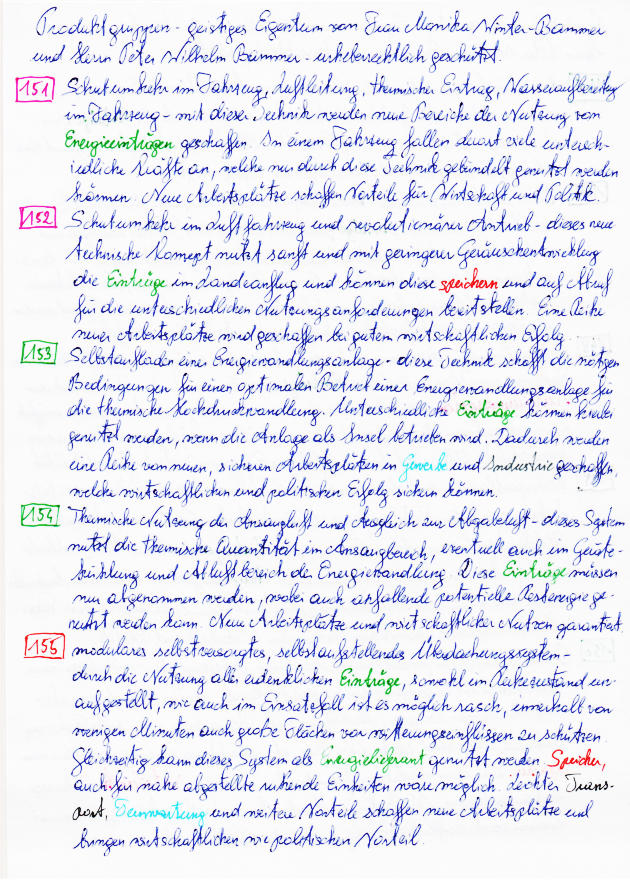 Produktgruppen - geistiges Eigentum von Frau Monika Winter-Bammer
und Herrn Peter Wilhelm Bammer - urheberrechtlich geschützt.
151 Schubumkehr im Fahrzeug, Luftleitung, thermischer Eintrag, Wasseraufbereitung
im Fahrzeug - mit dieser Technik werden neue Bereiche der Nutzung von
Energieeinträgen geschaffen. In einem Fahrzeug fallen derart viele untersch-
iedliche Kräfte an, welche nur durch diese Technik gebündelt genutzt werden
können. Neue Arbeitsplätze schaffen Vorteile für Wirtschaft und Politik.
152 Schubumkehr im Luftfahrzeug und revolutionärer Antrieb - dieses neue
technische Konzept nutzt sanft und mit geringerer Geräuschentwicklung
die Einträge im Landeanflug und können diese speichern und auf Abruf
für die unterschiedlichen Nutzungsanforderungen bereitstellen. Eine Reihe
neuer Arbeitsplätze wird geschaffen bei gutem wirtschaftlichen Erfolg.
153 Selbstaufladen einer Energiewandlungsanlage - diese Technik schafft die nötigen
Bedingungen für einen optimalen Betrieb einer Energiewandlungsanlage für
die thermische Hochdruckwandlung. Unterschiedliche Einträge können hierbei
genutzt werden, wenn die Anlage als Insel betrieben wird. Dadurch werden
eine Reihe von neuen, sicheren Arbeitsplätzen in Gewerbe und Industrie geschaffen,
welche wirtschaftlichen und politischen Erfolg sichern können.
154 Thermische Nutzung der Ansaugluft und Ausgleich zur Abgabeluft - dieses System
nutzt die thermische Quantität im Ansaugbereich, eventuell auch im Geräte-
kühlung und Abluftbereich der Energiewandlung. Diese Einträge müssen
nur abgenommen werden, wobei auch anfallende potentielle Restenergie ge-
nutzt werden kann. Neue Arbeitsplätze und wirtschaftlicher Nutzen garantiert.
155 modulares selbstversorgtes, selbstaufstellendes Überdachungssystem -
durch die Nutzung aller erdenklichen Einträge, sowohl im Ruhezustand un-
aufgestellt, wie auch im Einsatzfall ist es möglich rasch, innerhalb von
wenigen Minuten auch große Flächen vor Witterungseinflüssen zu schützen.
Gleichzeitig kann dieses System als Energielieferant genutzt werden. Speicher,
auch für nahe abgestellte ruhende Einheiten wäre möglich. Leichter Trans-
port, Fernwartung und weitere Vorteile schaffen neue Arbeitsplätze und
bringen wirtschaftlichen wie politischen Vorteil.